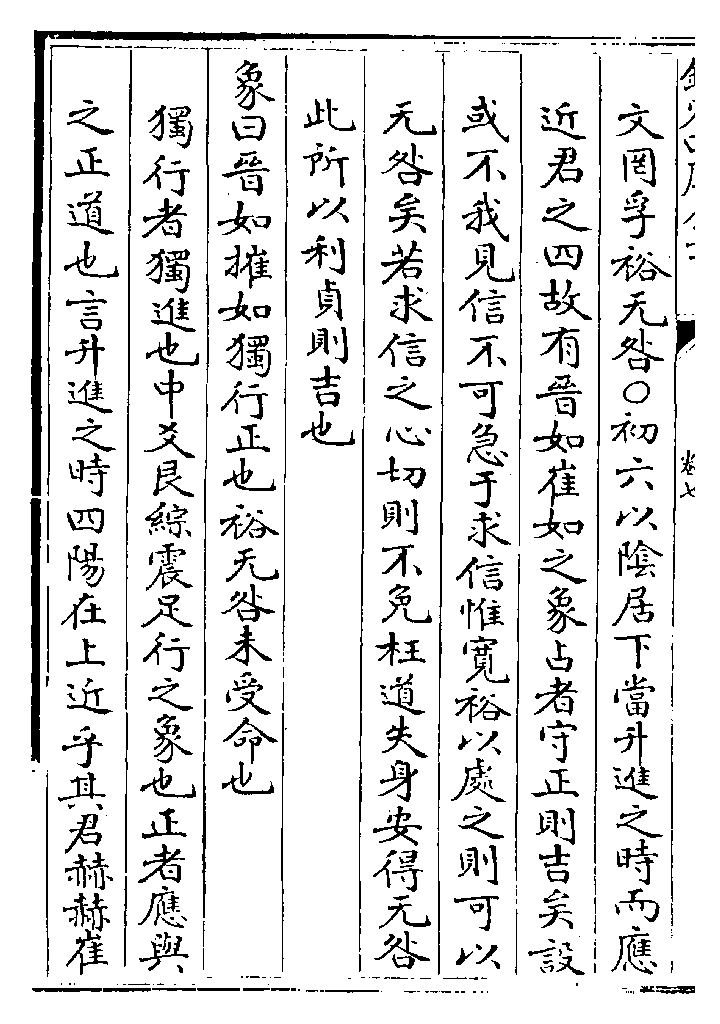 文罔孚裕无咎○初六以陰居下當升進之時而應
近君之四故有晉如崔如之象占者守正則吉矣設
或不我見信不可急于求信惟寛裕以處之則可以
无咎矣若求信之心切則不免枉道失身安得无咎
此所以利貞則吉也
象曰晉如摧如獨行正也裕无咎未受命也
獨行者獨進也中爻艮綜震足行之象也正者應與
之正道也言升進之時四陽在上近乎其君赫赫崔
卷七